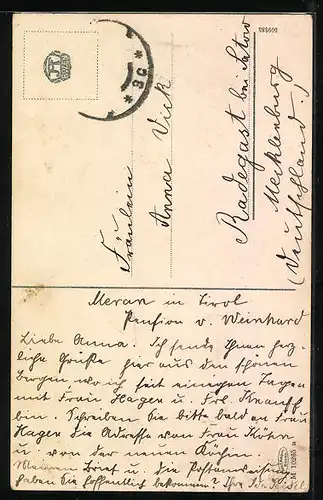 Meran in Tirol
Pension v. Weinhard
Liebe Anna. Ich sende Ihnen herz-
liche Grüße hier aus den schönen
Bergen, wo ich seit einigen Tagen
mit Frau Hager u. Frl.
bin. Schreiben Sie bitte bald an Frau
Hager die Adresse von Frau
u. von der neuen Köchin.
Meinen Brief u. die Postanweisung
haben Sie hoffentlich bekommen? Ihr
Fräulein
Anna Vick
Radegast bei Satow
Mecklenburg
(Deutschland.)
* 3G *